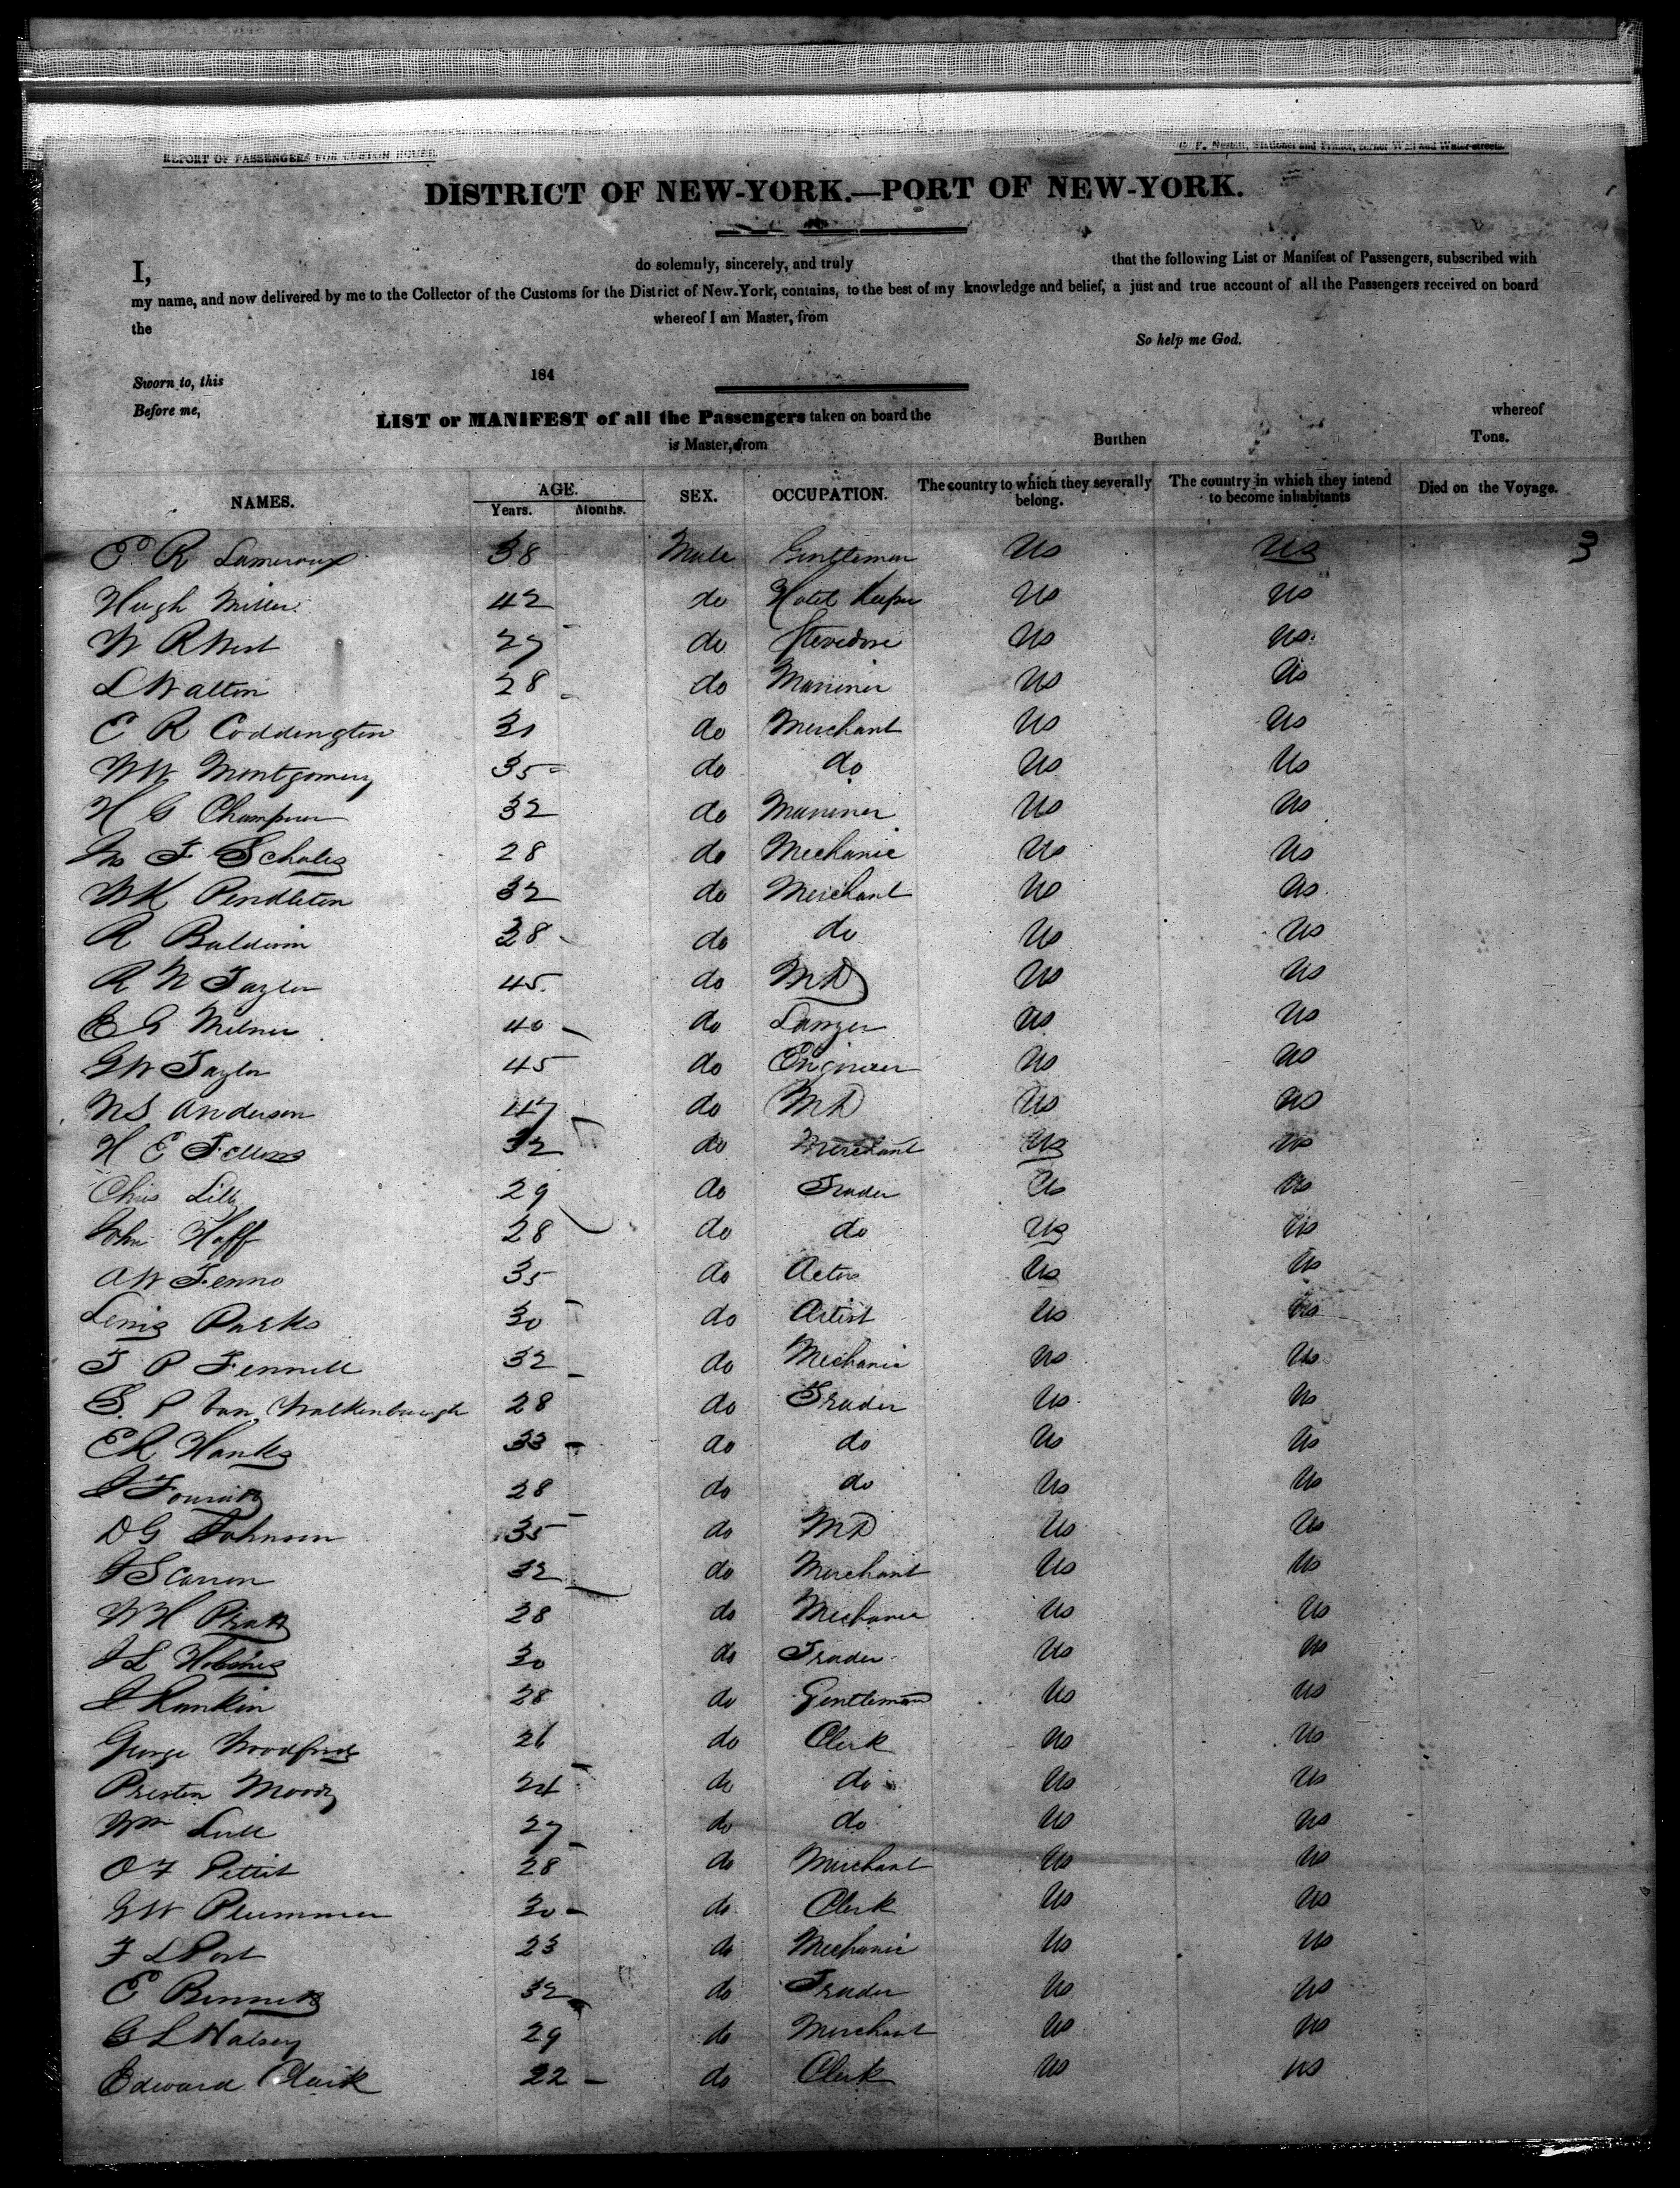 REPORT OF PASSENGERS FOR CUSTOM HOUSE.
G. F. Nesbitt, Stationer and Printer, corner Wall and Water-streets.
DISTRICT OF NEW-YORK.—PORT OF NEW-YORK.
I, do solemnly, sincerely, and truly that the following List or Manifest of Passengers, subscribed with
my name, and now delivered by me to the Collector of the Customs for the District of New-York, contains, to the best of my knowledge and belief, a just and true account of all the Passengers received on board
the whereof I am Master, from
So help me God.
Sworn to, this 184
Before me,
LIST or MANIFEST of all the Passengers taken on board the whereof
is Master, from Burthen Tons.
NAMES. AGE. Years. Months. SEX. OCCUPATION. The country to which they severally belong. The country in which they intend to become inhabitants Died on the Voyage.
P R Lameroux 38 Male Gentleman Us Us 3
Hugh Miller 42 do Hotel Keeper Us Us
W R West 27 do Stevedore Us Us
L Walton 28 do Mariner Us Us
C R Coddington 31 do Merchant Us Us
WW Montgomery 35 do do Us Us
H G Champion 32 do Mariner Us Us
F Scholes 28 do Mechanic Us Us
WK Pendleton 32 do Merchant Us Us
A Baldwin 38 do do Us Us
R N Taylor 45 do MD Us Us
E G Milner 40 do Lawyer Us Us
GW Taylor 45 do Engineer Us Us
NS Anderson 47 do MD Us Us
H E Fellows 32 do Merchant Us Us
Chris Lilly 29 do Trader Us Us
John Hoff 28 do do Us Us
AW Fenno 35 do Actor Us Us
Lewis Parks 30 do Artist Us Us
T P Fennell 32 do Mechanic Us Us
S. P Van Walkenburgh 28 do Trader Us Us
ER Hanks 33 do do Us Us
J 28 do do Us Us
DG Johnson 35 do MD Us Us
J S Carron 32 do Merchant Us Us
WH Pratt 28 do Mechanic Us Us
J L Holmes 30 do Trader Us Us
J Rankin 28 do Gentleman Us Us
George Woodford 26 do Clerk Us Us
Preston Moody 24 do do Us Us
Wm Lull 27 do do Us Us
O F Pettit 28 do Merchant Us Us
GW Plummer 30 do Clerk Us Us
F L Post 23 do Mechanic Us Us
E Bennett 32 do Trader Us Us
G L Halsey 29 do Merchant Us Us
Edward Clark 22 do Clerk Us Us